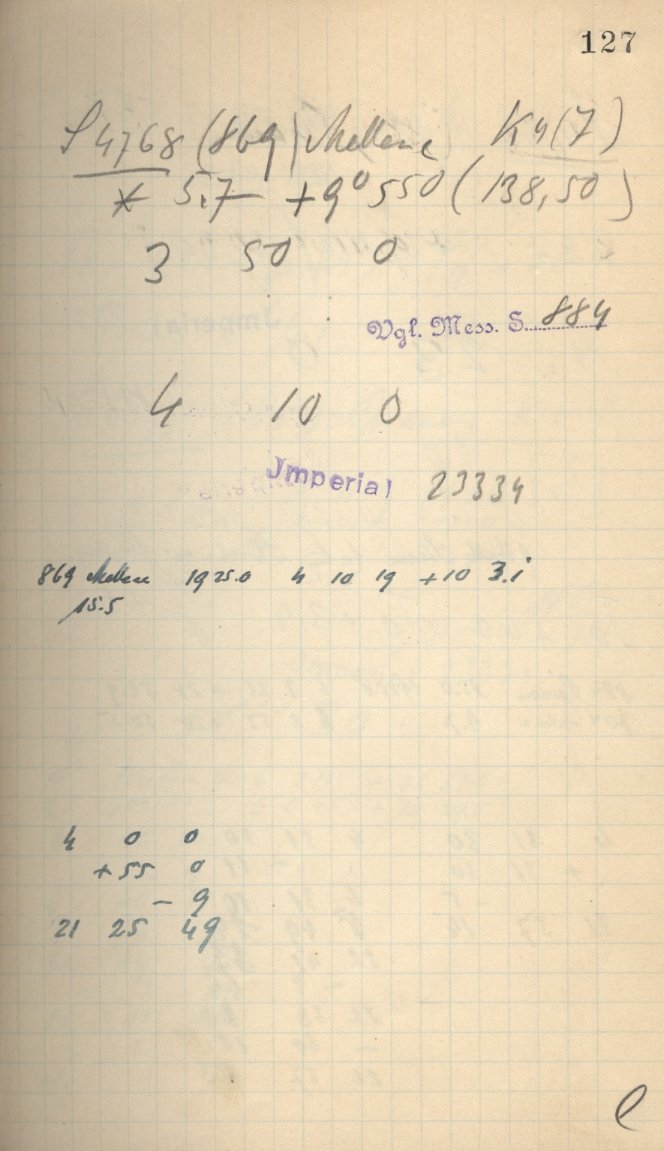 127
S 4768 (869) Mellena K4(7)
* 5.7 +9° 550 (138,50)
3 50 0
Vgl. Mess. S. 884
4 10 0
Imperial 23334
869 Mellena 1925.0 4 10 19 +10 3.1
15.5
4 0 0
+55 0
- 9
21 25 49